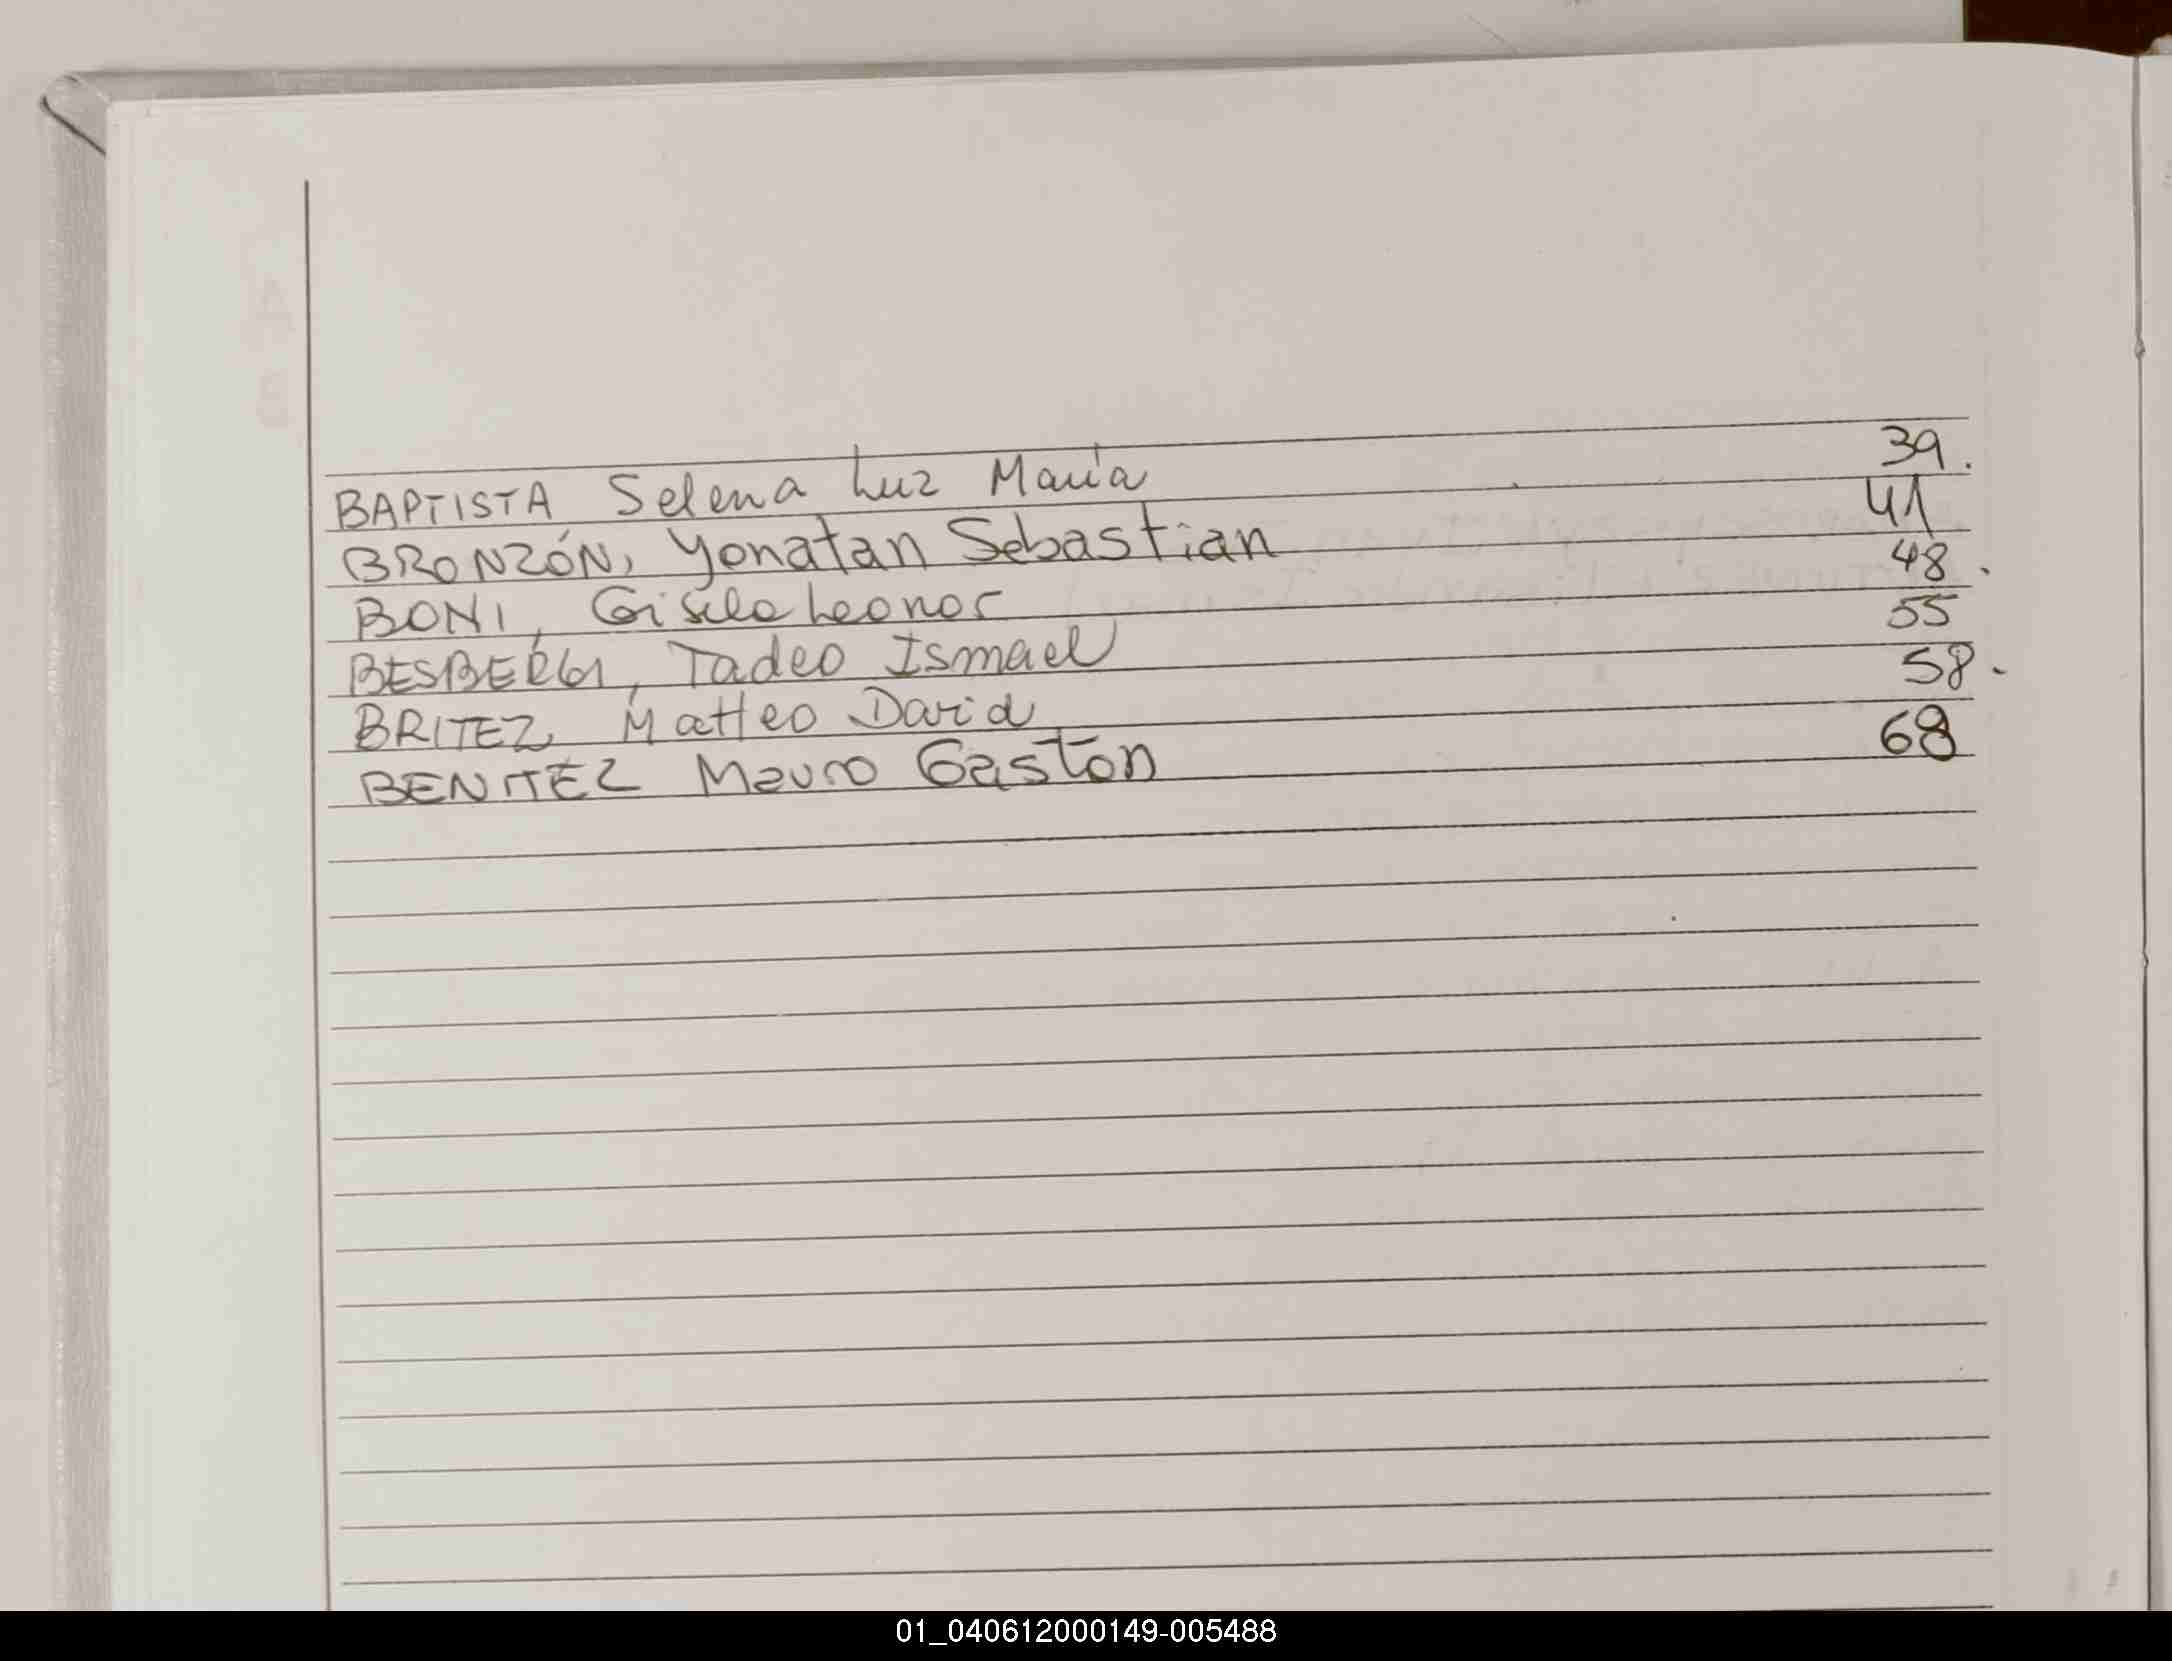 BAPTISTA Selena Luz María 39.
BRONZÓN, Yonatan Sebastian 41
BONI, Gisela Leonor 48.
BESBERGI, Tadeo Ismael 55
BRITEZ, Matteo David 58.
BENITEZ Mauro Gastón 68
01_040612000149-005488